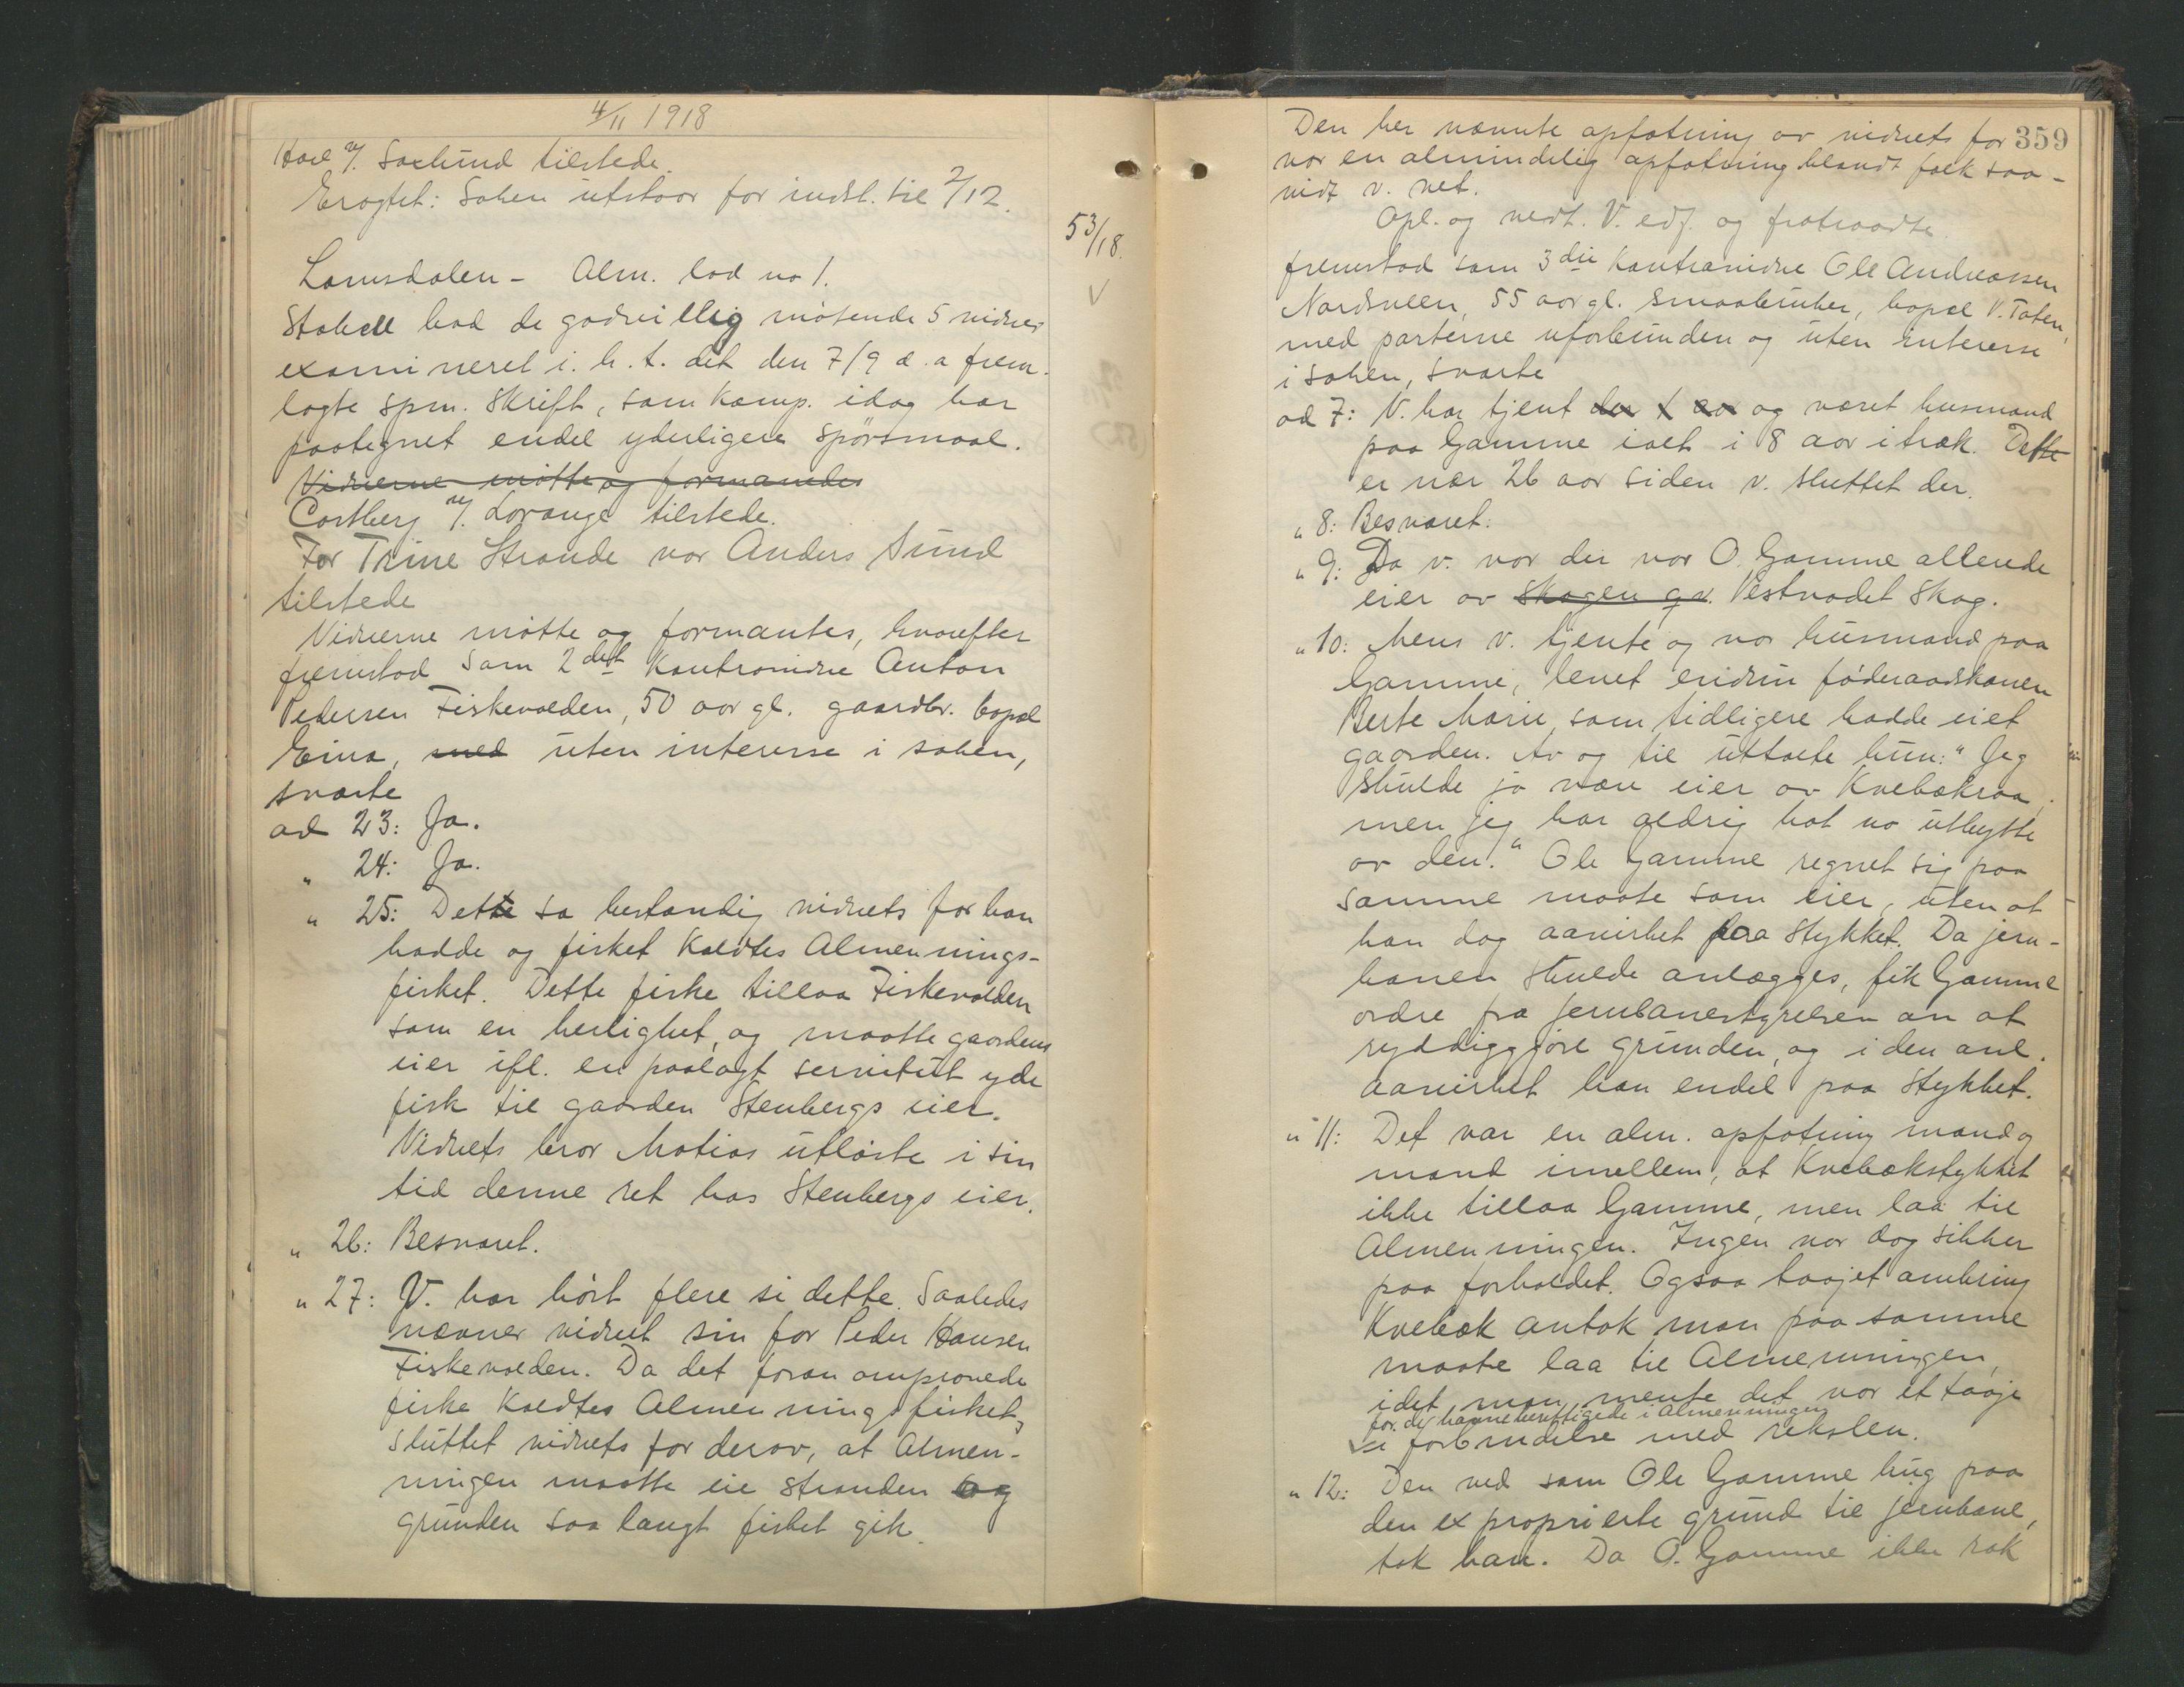 4/11 1918
Hoel v/. Saxlund tilstede.
Eragtet: Saken utstaar for indst. til 2/12.
53/18.
V
Lomsdalen - Alm. lod no 1.
Stabell bad de godvillig møtende 5 vidner
examineret i. h. t. det den 7/9 d. a frem-
lagte spm. skrift, som komp. idag har
paategnet endel yderligere spørsmaal.
Vidnerne møtte og formanedes
Castberg v/. Lorange tilstede.
For Trine Strande var Anders Sund
tilstede
Vidnerne møtte og formantes, hvorefter
fremstod som 2det Kontravidne Anton
Pedersen Fiskevolden, 50 aar gl. gaardbr. bopæl
Eina, med uten interesse i saken,
svarte
ad 23: Ja.
" 24: Ja.
" 25: Dette sa bestandig vidnets far han
hadde og fisket kaldtes Almennings-
fisket. Dette fiske tillaa Fiskevolden
som en herlighet, og maatte gaardens
eier ifl. en paalagt servitut yde
fisk til gaarden Stenbergs eier.
Vidnets bror Matias utløste i sin
tid denne ret hos Stenbergs eier.
" 26: Besvaret.
" 27: V. har hørt flere si dette. Saaledes
nævner vidnet sin far Peder Hansen
Fiskevolden. Da det foran omprövede
fiske kaldtes Almenningsfisket,
sluttet vidnets far derav, at Almen-
ningen maatte eie stranden og
grunden saa langt fisket gik.
359
Den her nævnte opfatning av vidnets far
var en almindelig opfatning blandt folk saa-
vidt v. vet.
Opl. og vedt. V. edf. og fratraadte.
fremstod som 3die kontravidne Ole Andreassen
Nordsveen, 55 aar gl. smaabruker, bopæl V. Toten,
med parterne uforbunden og uten interesse
i saken, svarte
ad 7: V. har tjent der 1 aar og været husmand
paa Gamme ialt i 8 aar i træk. Dette
er nær 26 aar siden v. sluttet der.
" 8: Besvaret.
" 9: Da v. var der var O. Gamme allerede
eier av skogen gv. Vestvadet skog.
" 10: Mens v. tjente og var husmand paa
Gamme, levet endnu føderaadskonen
Berte Marie, som tidligere hadde eiet
gaarden. Av og til uttalte hun: "Jeg
skulde jo være eier av Kvebækraa,
men jeg har aldrig hat no utbytte
av den." Ole Gamme regnet sig paa
samme maate som eier, uten at
han dog aavirket paa stykket. Da jern-
banen skulde anlægges, fik Gamme
ordre fra jernbanestyrelsen om at
ryddiggjøre grunden, og i den anl.
aavirket han endel paa stykket.
" 11: Det var en alm. opfatning mand og
mand imellem, at Kvebækstykket
ikke tillaa Gamme, men laa til
Almenningen. Ingen var dog sikker
paa forholdet. Ogsaa taajet omkring
Kvebæk antok man paa samme
maate laa til Almenningen,
idet man mente det var et taaje
for de havneberettigede i Almenningen
i forbindelse med rekslen.
" 12: Den ved som Ole Gamme hug paa
den exproprierte grund til jernbane,
tok han. Da O. Gamme ikke rak